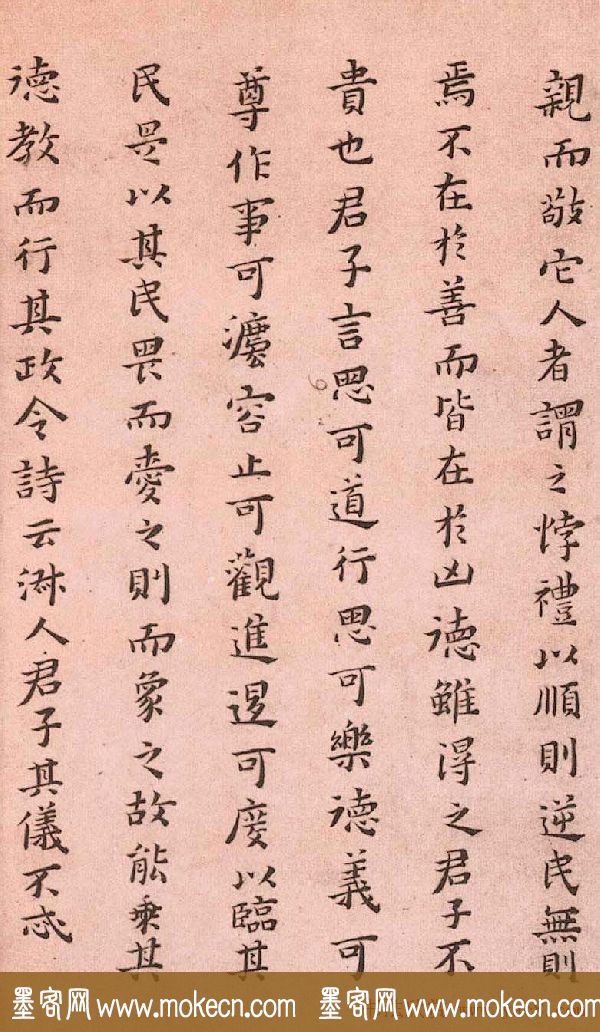 親而敬它人者謂之悖禮以順則逆民無則
焉不在於善而皆在於凶德雖得之君子不
貴也君子言思可道行思可樂德義可
尊作事可灋容止可觀進退可度以臨其
民是以其民畏而愛之則而象之故能乘其
德教而行其政令詩云淋人君子其儀不忒
墨客网 www.mokecn.com 墨客网 www.mokecn.com